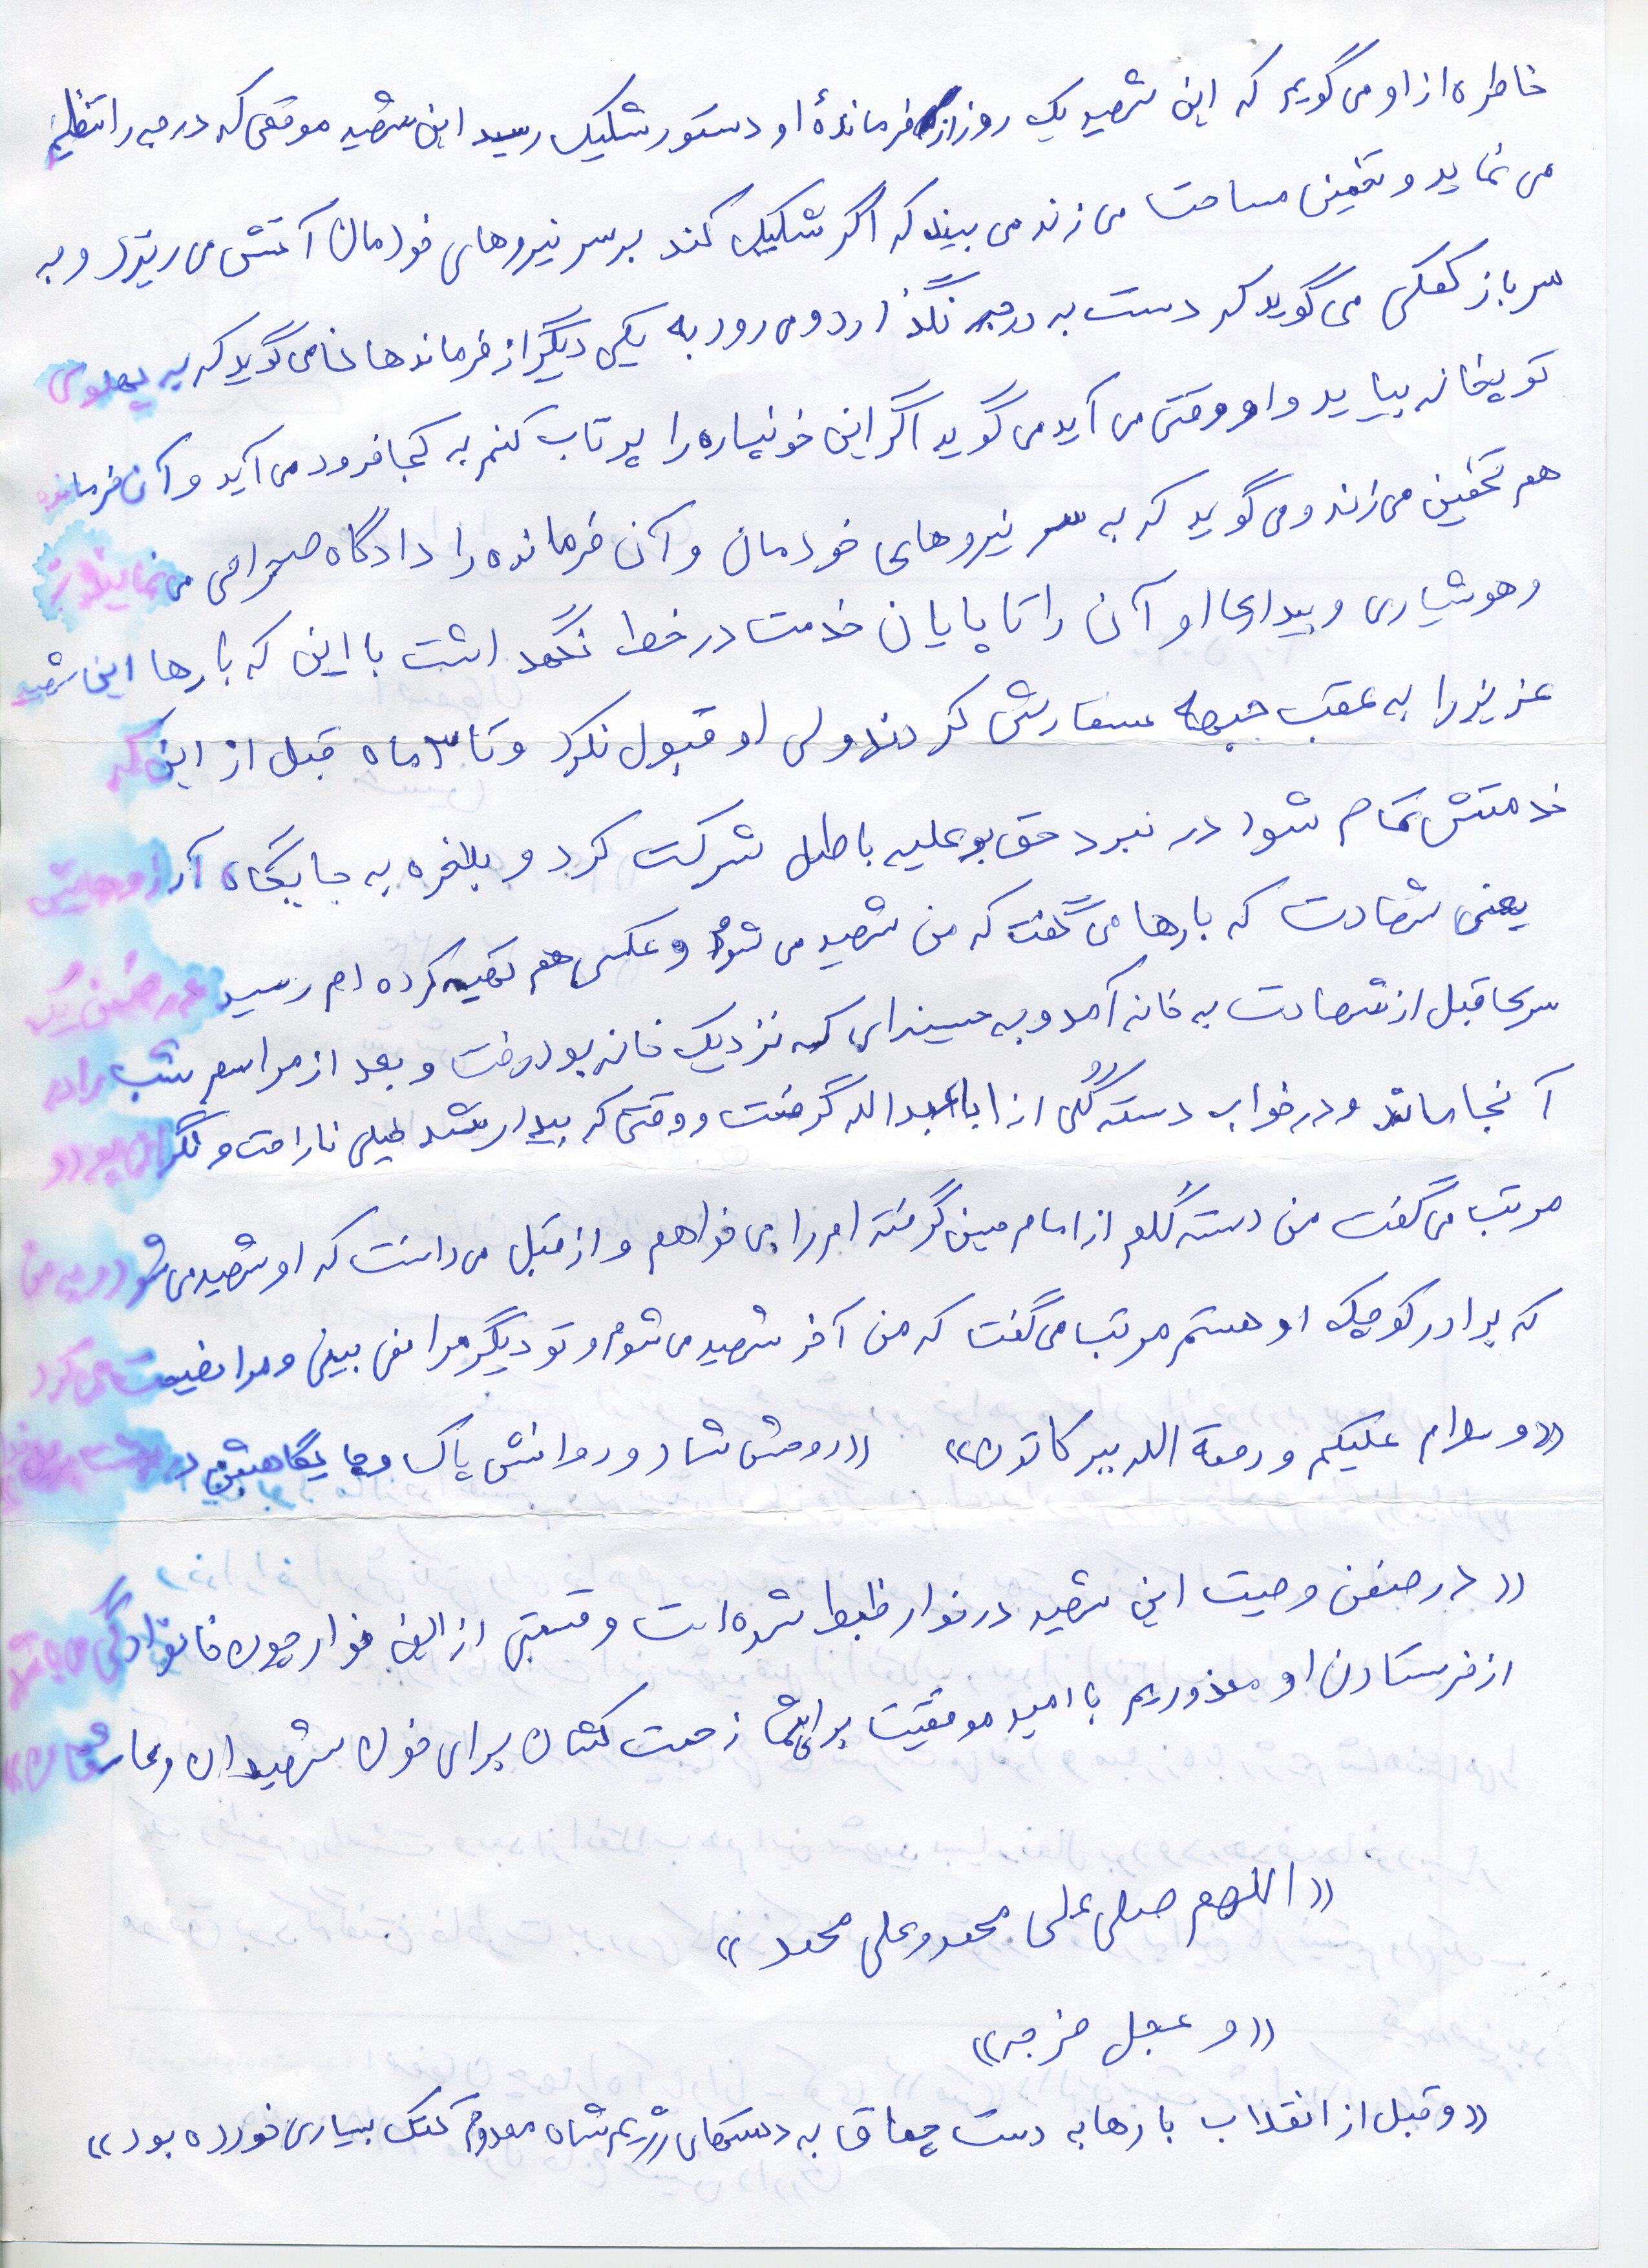 خاطره از او می گویم که این شهید یک روز از فرماندهٔ او دستور شلیک رسید این شهید موقعی که درجه را تنظیم
می نماید و تخمین مساحت می زند می بیند که اگر شلیک کند بر سر نیروهای خودمان آتش می ریزد و به
سرباز کمکی می گوید که دست به درجه نگذارد و می رود به یکی دیگر از فرماندها می گوید که به پهلوی
توپخانه بیاید و او وقتی می آید می گوید اگر این خونپاره را پرتاب کنم به کجا فرود می آید و آن فرمانده
هم تخمین می زند و می گوید که به سر نیروهای خودمان و آن فرمانده را دادگاه صحرامی می نمایند
و هوشیاری و بیداری او آن را تا پایان خدمت در خط نگهداشت با این که بارها این شهید
عزیز را به عقب جبهه سفارش کردند ولی او قبول نکرد و تا ۳ ماه قبل از این که
خدمتش تمام شود در نبرد حق بر علیه باطل شرکت کرد و بلخره به جایگاه
یعنی شهادت که بارها می گفت که من شهید می شوم و عکسی هم تهیه کرده ام رسید در ضمن یک
قبل از شهادت به خانه آمد و به حسینه ای که نزدیک خانه بود رفت و بعد از مراسم شب را در
آنجا ماند و در خواب دسته گلی از ابا عبدالله گرفت و وقتی که بیدار شد خیلی ناراحت و نگران بود و
مرتب می گفت من دسته گلم از امام حسین گرفته ام را می خواهم و از قبل می دانست که او شهید می شود و به من
که برادر کوچک او هستم مرتب می گفت که من آخر شهید می شوم و تو دیگر مرا نمی بینی و مرا نصیحت می کرد
«و سلام علیکم و رحمة الله برکاتوه» «روحش شاد و روانش پاک و جایگاهش در بهشت برین باد
«در ضمن وصیت این شهید در نوار ظبط شده است و قسمتی از این نوار چون خانوادگی می باشد
از فرستادن او معذوریم با امید موفقیت برای شما زحمت کشان برای خون شهیدان
«اللهم صلی علی محمد و علی محمد»
«و عجل فرجه»
«و قبل از انقلاب بارها به دست چماق به دستهای رژیم شاه معدوم کتک بسیاری خورده بود»